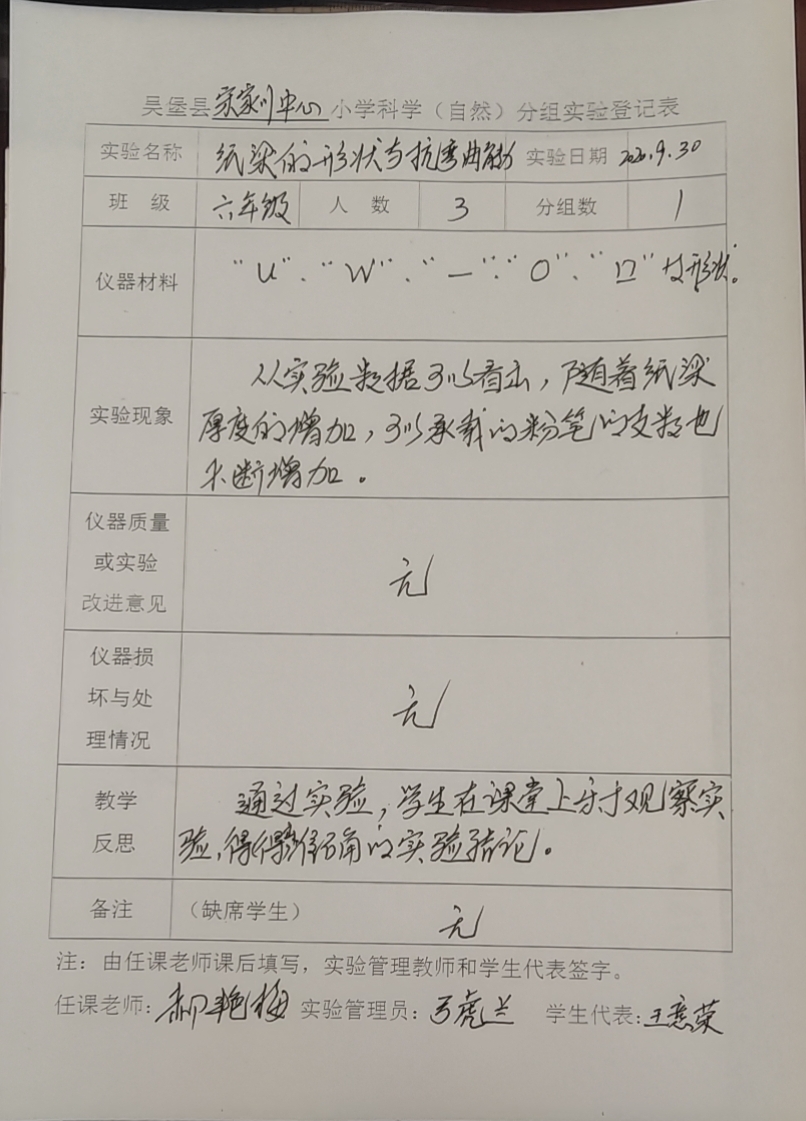 吴堡县宋家川中心小学科学（自然）分组实验登记表
实验名称 纸梁的形状与抗弯曲能力 实验日期 2020.9.30
班 级 六年级 人 数 3 分组数 1
仪器材料 “U”、“W”、“一”、“O”、“口”等形状。
实验现象 从实验数据可以看出，随着纸梁
厚度的增加，可以承载的粉笔的支数也
不断增加。
仪器质量
或实验
改进意见 无
仪器损
坏与处
理情况 无
教学
反思 通过实验，学生在课堂上乐于观察实
验，得到正确的实验结论。
备注 （缺席学生） 无
注：由任课老师课后填写，实验管理教师和学生代表签字。
任课老师：郝艳梅 实验管理员：弓虎兰 学生代表：王荣